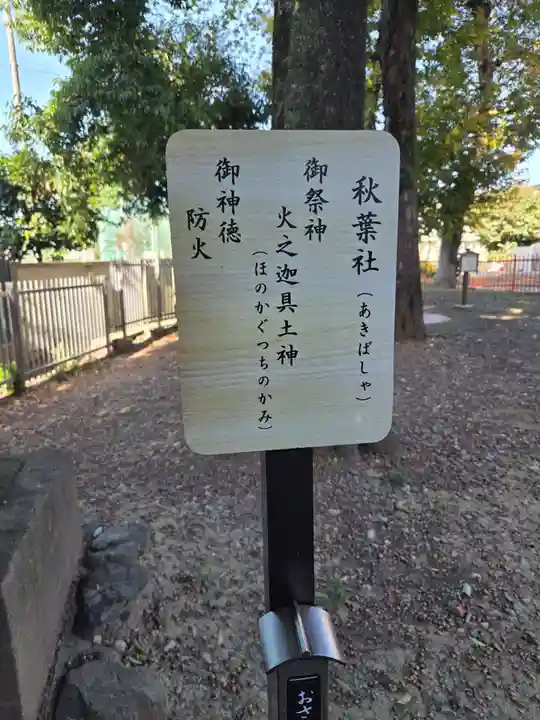 秋葉社(あきばしゃ)
御祭神
火之迦具土神
(ほのかぐつちのかみ)
御神徳
防火
おさ